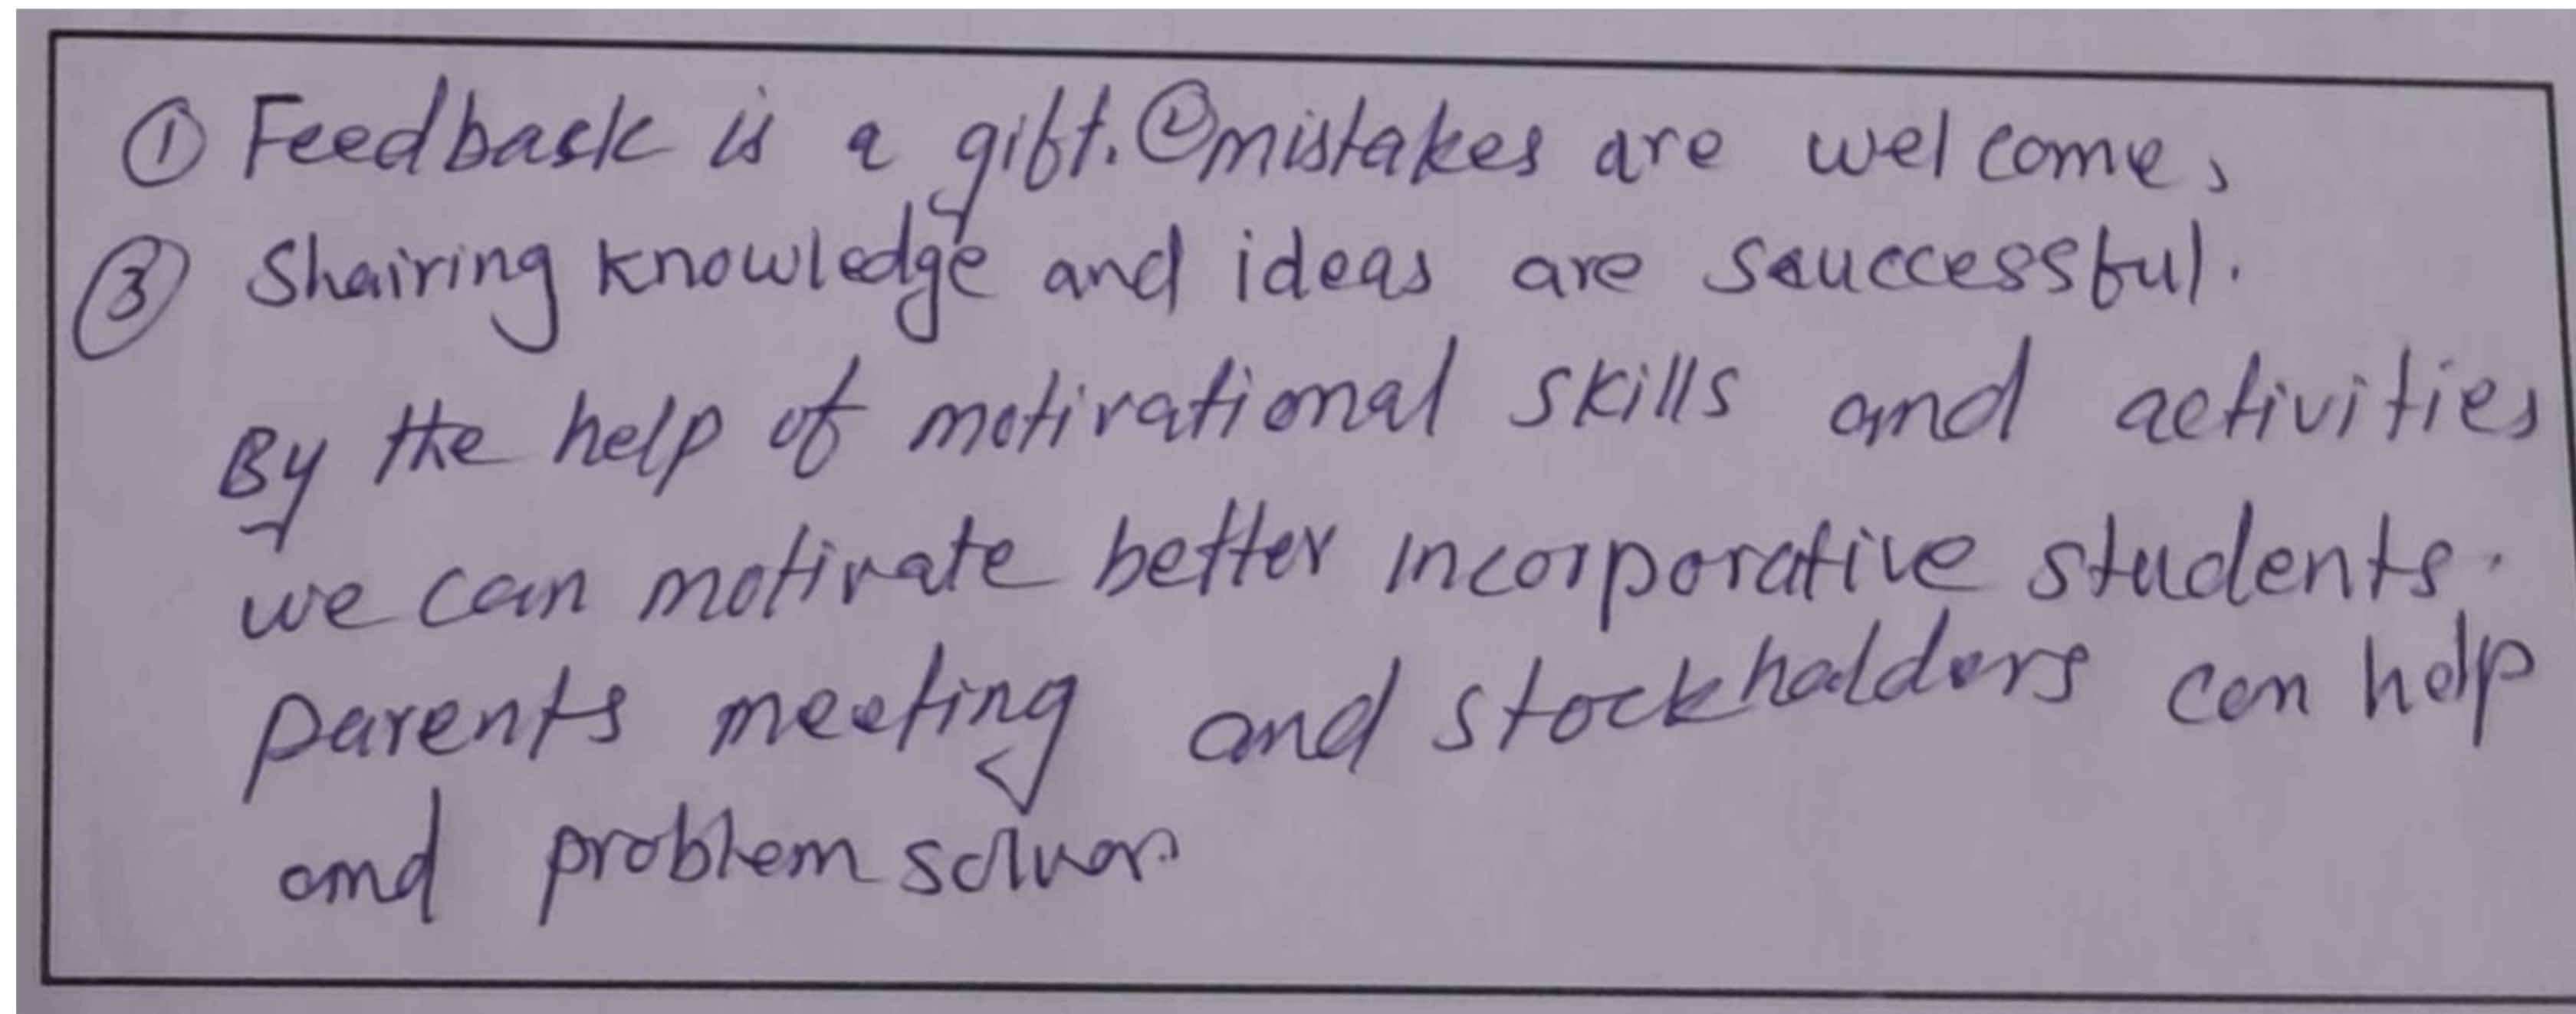 ① Feedback is a gift. ② mistakes are welcome,
③ Shairing knowledge and ideas are sauccessful.
By the help of motivational skills and activities
we can motivate better incorporative students.
parents meeting and stockhalders can help
and problem solver.